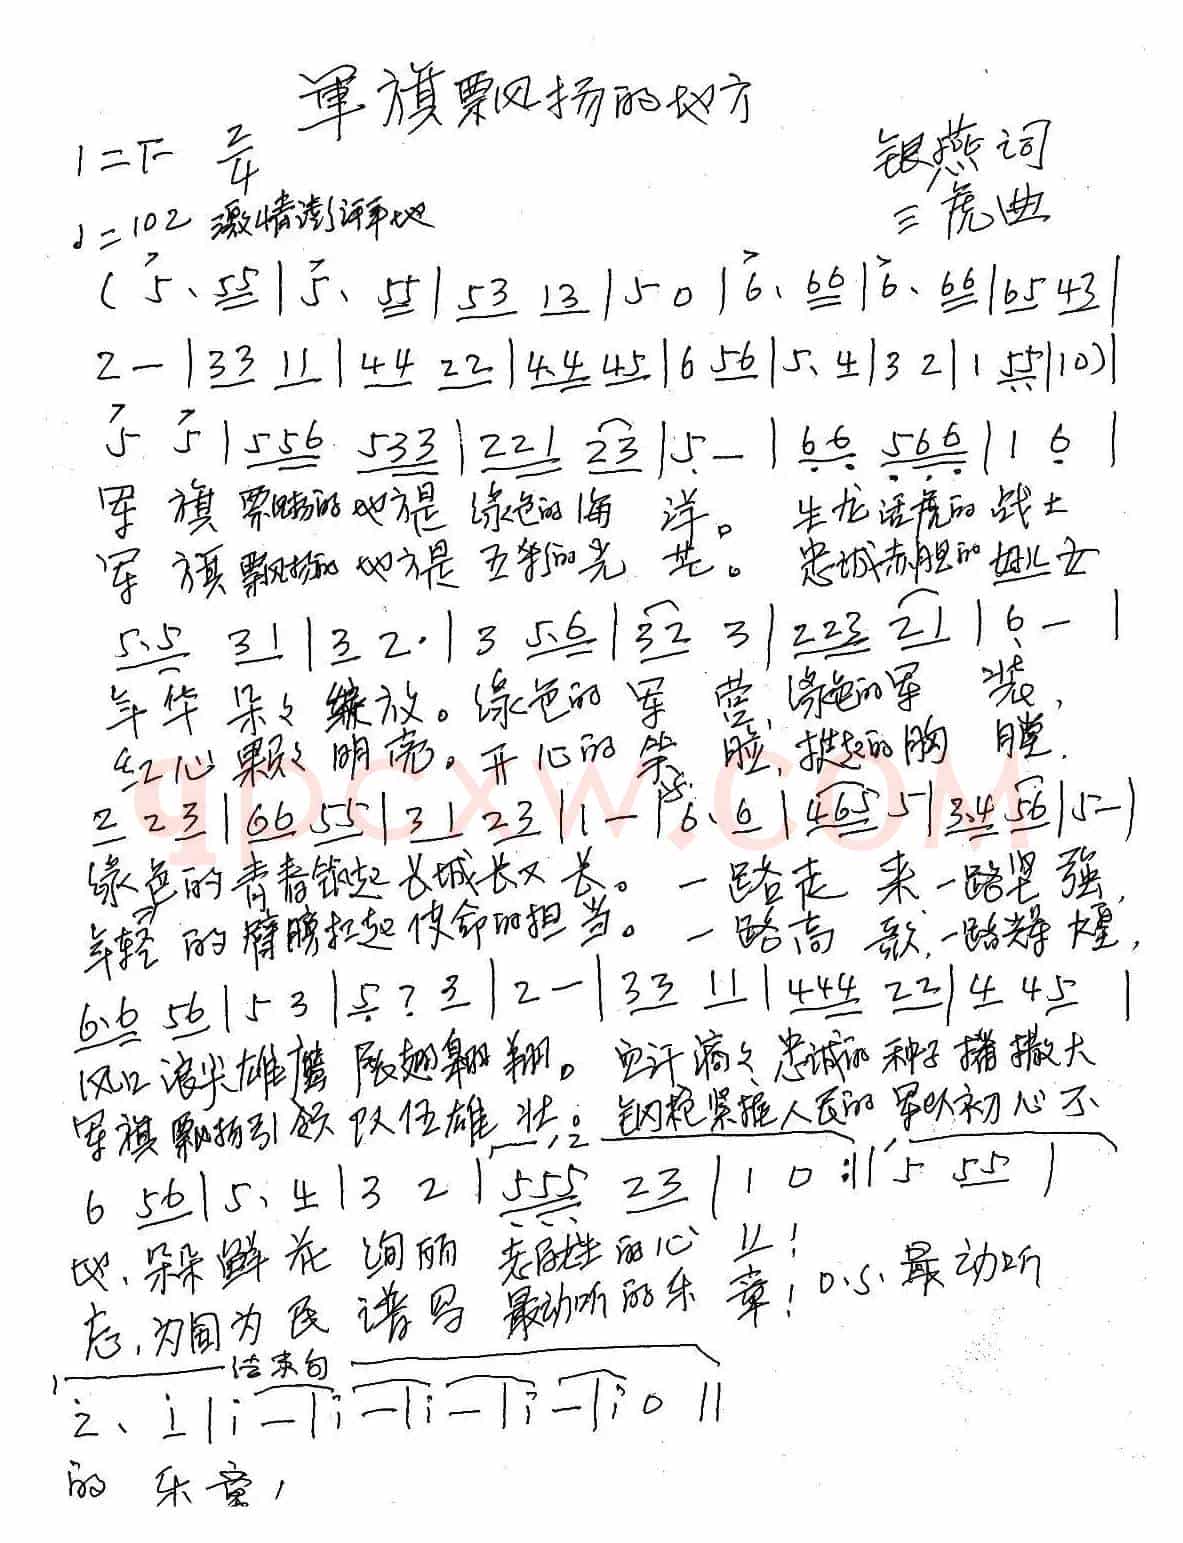 軍旗飘扬的地方
1=F 2/4
银燕词
♩=102 激情澎湃地
三虎曲
(5、55|5、55|53 13|5 0|6、66|6、66|65 43|
2 —|33 11|44 22|4.4 45|6 56|5、4|3 2|1 55|10)|
5 5|556 533|221 23|5 —|66 566|1 6|
军旗飘扬的地方是绿色的海洋。生龙活虎的战士
军旗飘扬的地方是五彩的光芒。忠诚赤胆的好儿女
5.5 31|3 2·|3 5.6|32 3|223 21|6 —|
年华朵々绽放。绿色的军营,绿色的军装,
红心颗々明亮。开心的笑脸,挺起的胸膛.
qpcxw.com
2 23|66 55|31 23|1 —|6.6|465 5|3.4 56|5—|
绿色的青春筑起长城长又长。一路走来一路坚強,
年轻的臂膀扛起使命的担当。一路高歌,一路辉煌,
6.6 56|5 3|5 ? 3|2 —|33 11|444 22|4 45|
风口浪尖雄鹰展翅翱翔。血汗滴々忠诚的种子播撒大
军旗飘扬引领队伍雄壮。钢枪紧握人民的军队初心不
1,2
6 56|5、4|3 2|555 23|1 0:||5 55|
地、朵朵鲜花绚丽老百姓的心上!
忘,为国为民谱写最动听的乐章! D.S. 最动听
结束句
2、1|i —|i —|i —|i —|i 0||
的乐章!